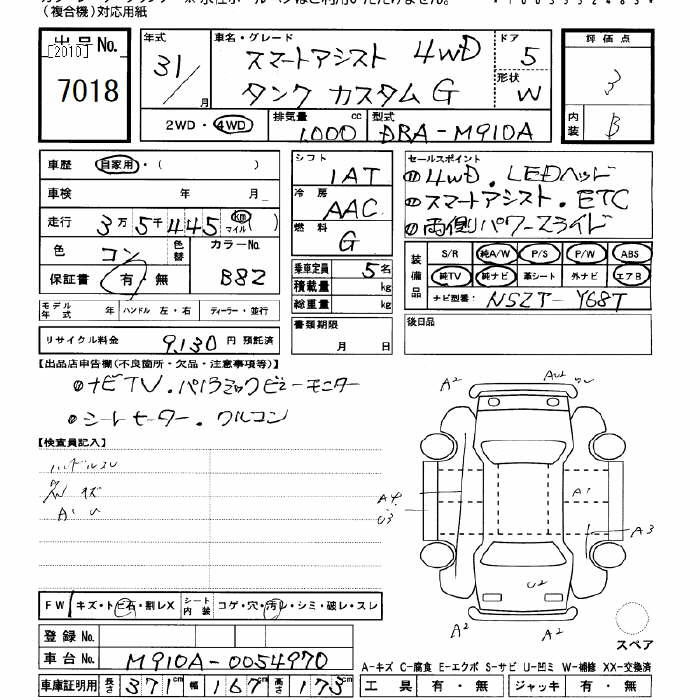 (複合機)対応用紙
出品No.
[2010]
7018
年式
31/
月
車名・グレード
スマートアシスト 4WD
タンク カスタム G
ドア
5
形状
W
2WD・4WD
排気量
1,000
cc
型式
DBA-M910A
評価点
3
内装
B
車歴
自家用・(　　)
車検
年
月
走行
3万5千445
km
マイル
色
コン
色替
カラーNo.
B82
保証書
有・無
モデル年式
年
ハンドル 左・右
ディーラー・並行
リサイクル料金
9,130
円 預託済
シフト
1AT
冷房
AAC
燃料
G
乗車定員
5名
積載量
kg
総重量
kg
書類期限
月 日
セールスポイント
①4WD．LEDヘッド
②スマートアシスト．ETC
③両側パワースライド
装備品
S/R 純A/W P/S P/W ABS
純TV 純ナビ 革シート 外ナビ エアB
ナビ型番:
NSZT-Y68T
後日品
【出品店申告欄(不良箇所・欠品・注意事項等)】
ナビTV．パノラミックビューモニター
シートヒーター．クルコン
【検査員記入】
ハンドルスレ
キズ
AU
A2
A1
A3
U2
A2
A2
FW
キズ・ト・ヒ石・割レX
シート内装
コゲ・穴・汚レ・シミ・破レ・スレ
スペア
登録No.
車台No.
M910A-0054970
車庫証明用
長さ
371
cm
幅
167
cm
高さ
173
cm
A-キズ C-腐食 E-エクボ S-サビ U-凹ミ W-補修 XX-交換済
工具 有・無
ジャッキ 有・無